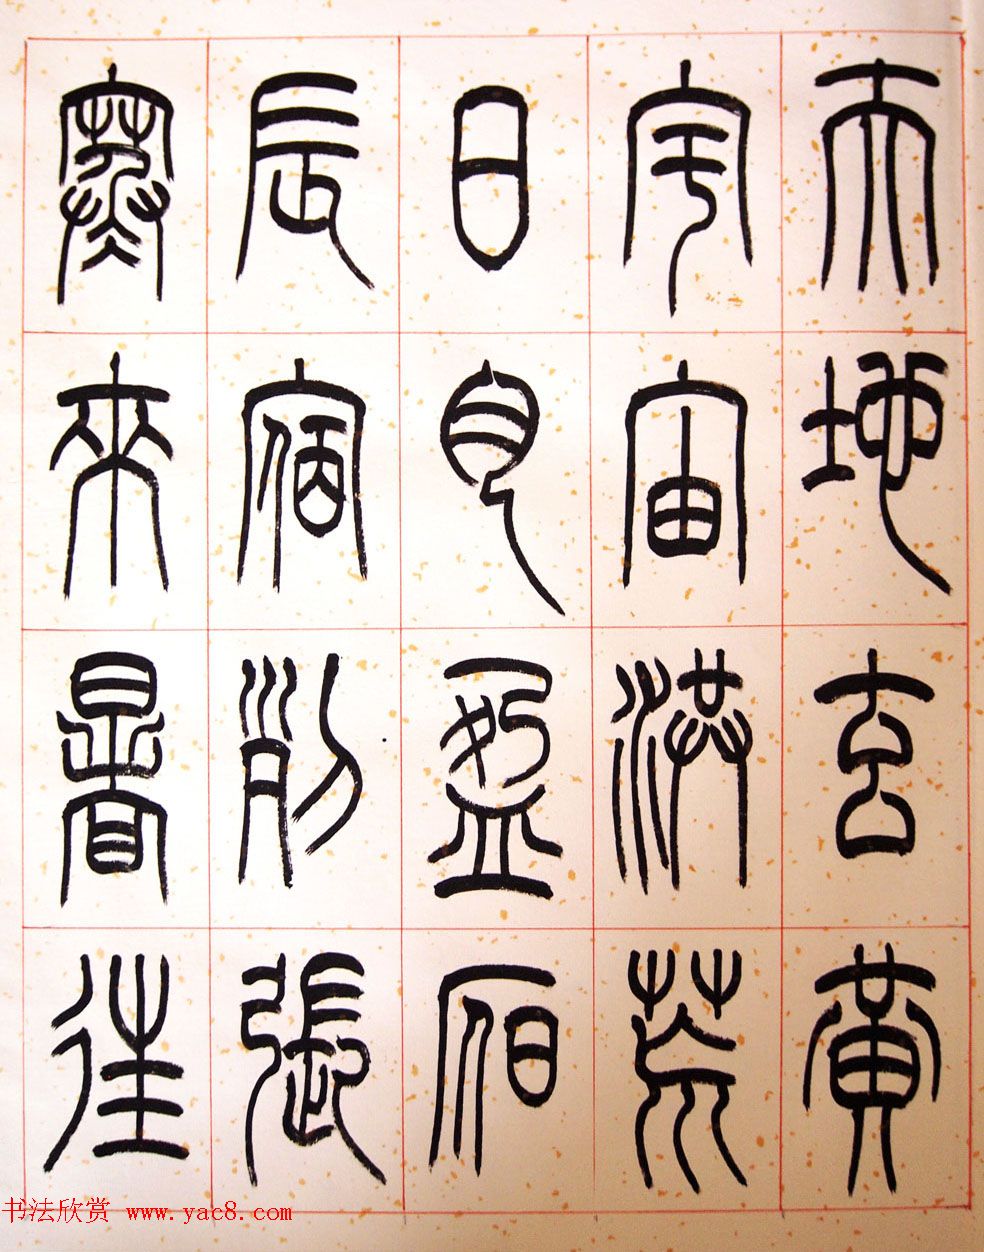 天地玄黃
宇宙洪荒
日月盈昃
辰宿列張
寒來暑往
书法欣赏 www.yac8.com